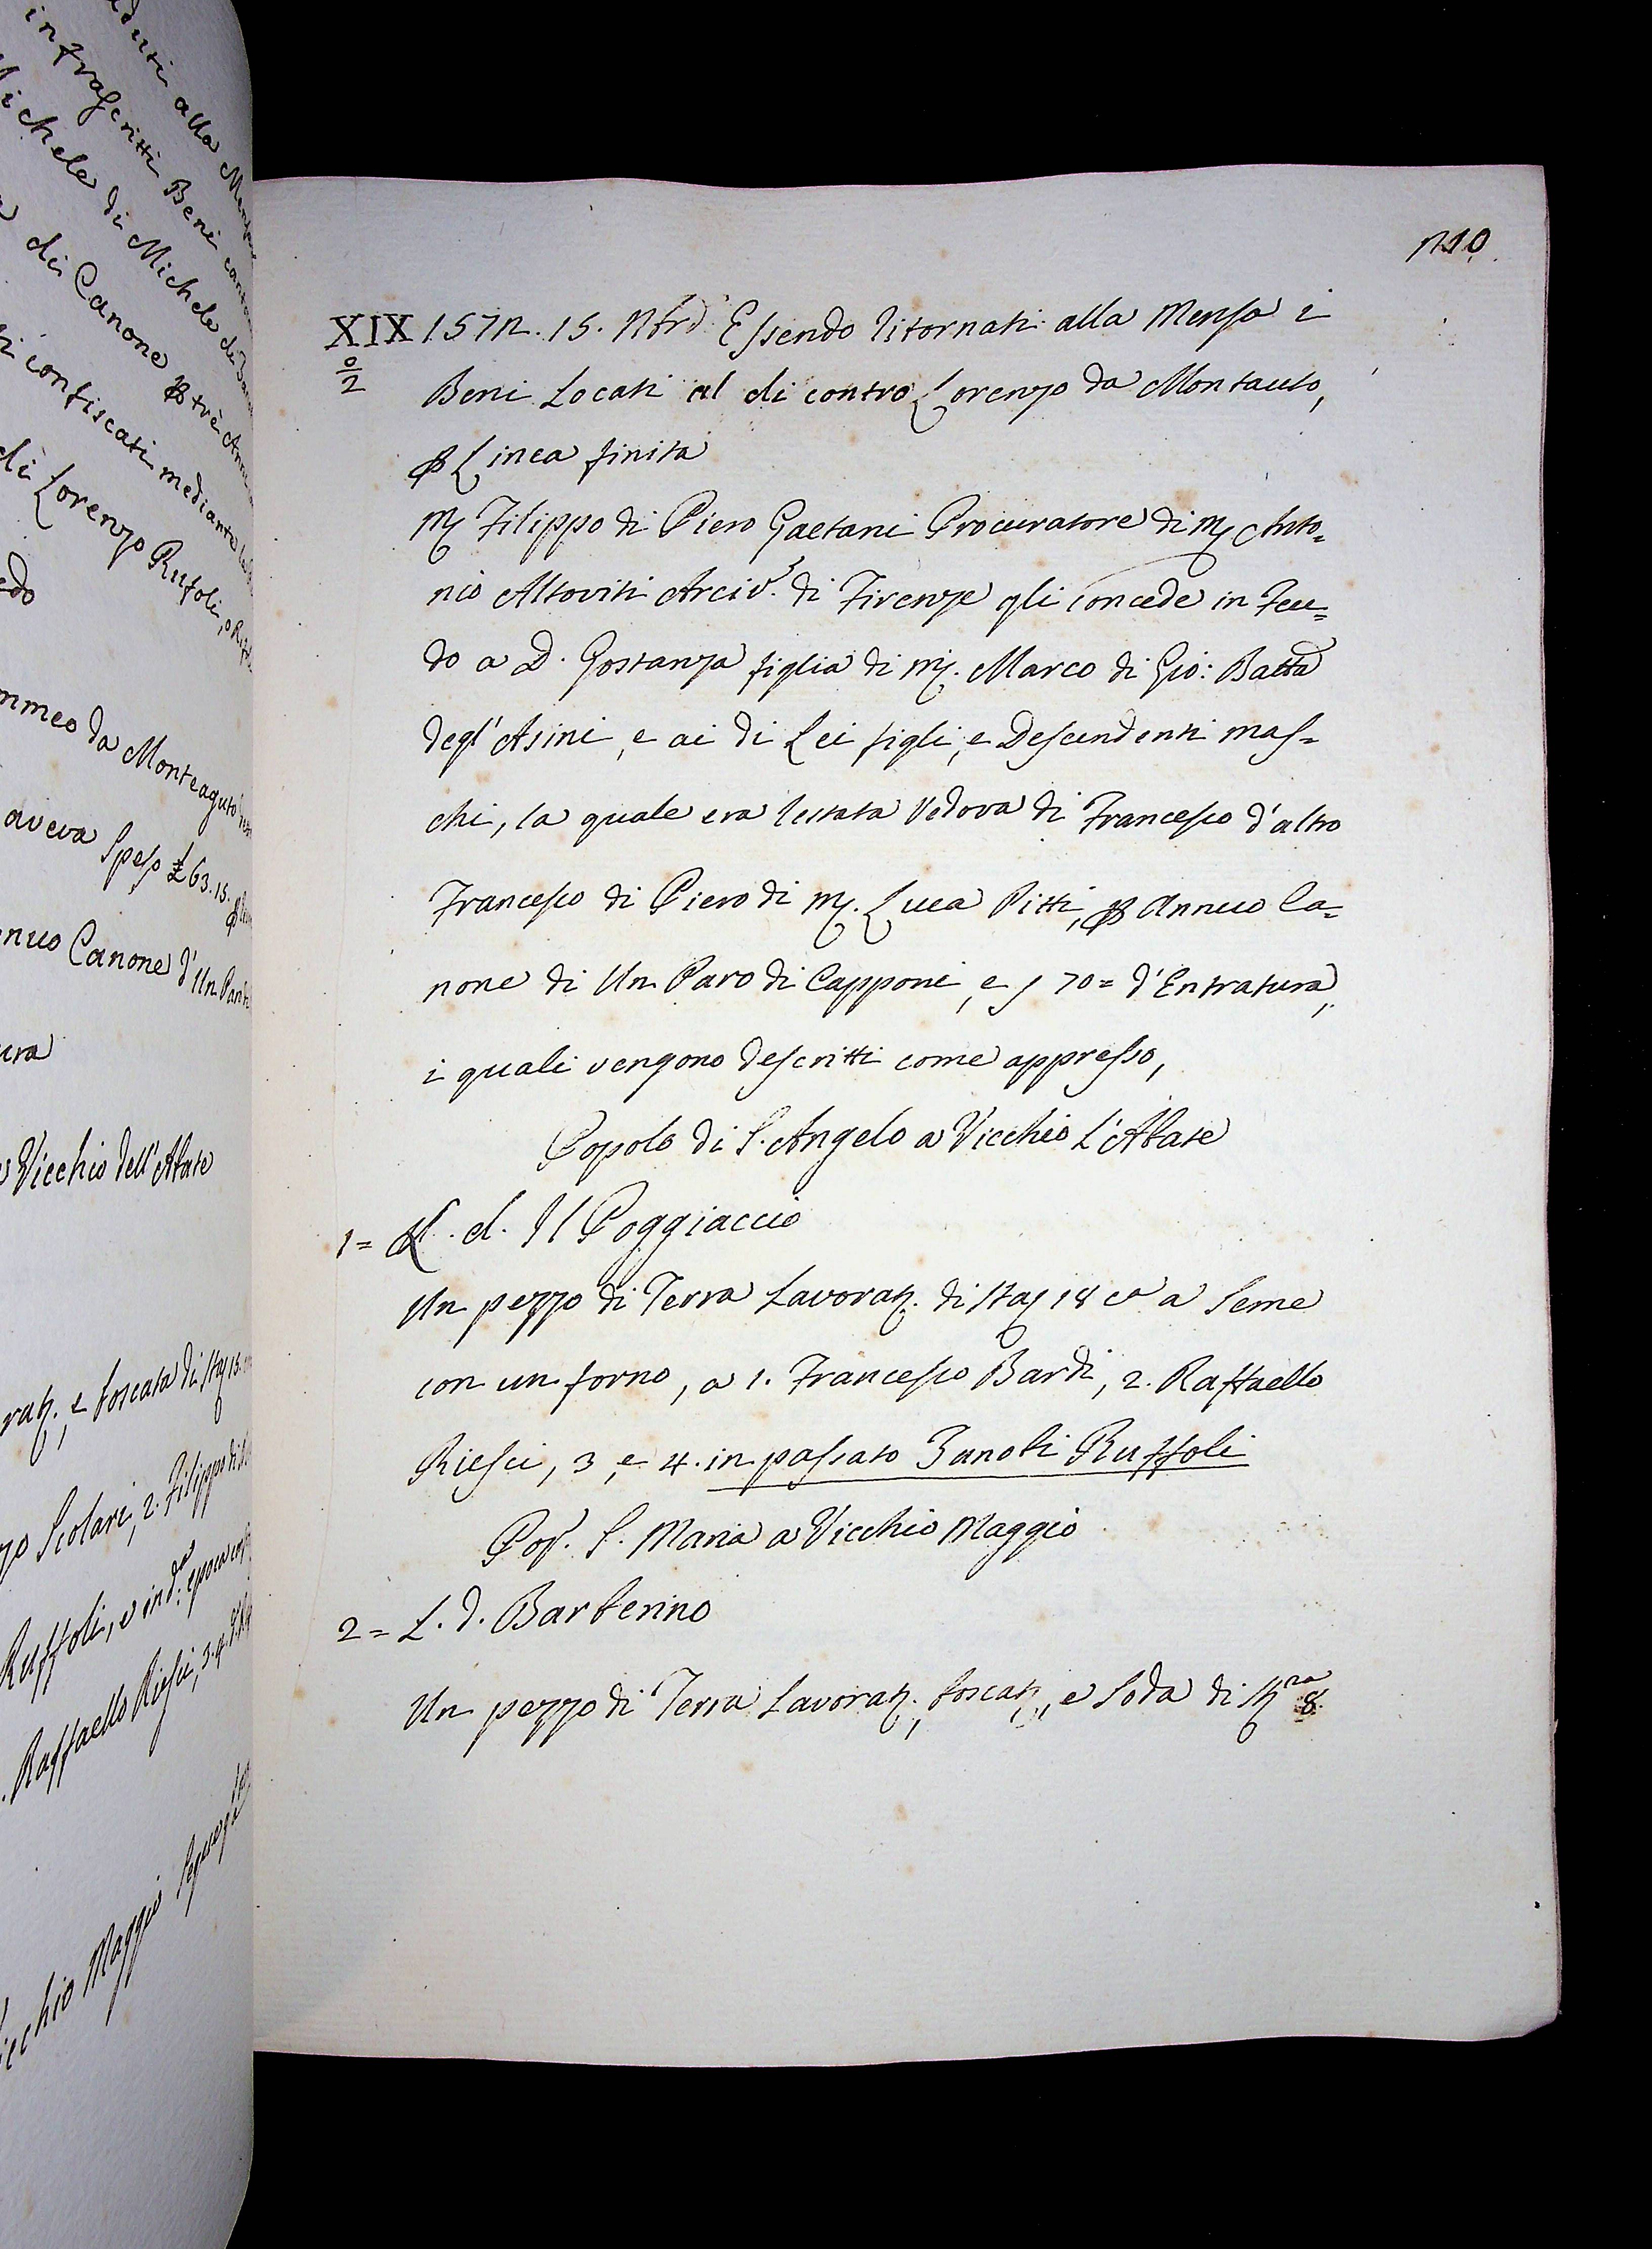 aduti alla Mensa
infrascritti Beni
Michele di Michele di
di Canone p tre
confiscati mediante
di Lorenzo Rufoli, o
edo
mmeo da Monteaguto
aveva Speso £ 63.15.
nuo Canone d'Un Par
ura
Vicchio dell'Abate
rati., e boscata di Sta 15.
zo Scolari, 2. Filippo di
Ruffoli, e in dº. epoca
. Raffaello Riesci, 3. 4.
icchio Maggio
XIX 1572. 15. Nbre Essendo ritornati alla Mensa i
0/2
Beni Locati al di contro Lorenzo da Montauto,
p Linea finita
Mr Filippo di Piero Gaetani Procuratore di Mr Anto=
nio Altoviti Arciv. di Firenze gli concede in Feu=
do a D. Gostanza figlia di Mr. Marco di Gio: Batta
degl'Asini, e ai di Lei figli, e Descendenti mas=
chi, la quale era restata Vedova di Francesco d'altro
Francesco di Piero di Mr. Luca Pitti, p Annuo Ca=
none di Un Paro di Capponi, e ƒ 70= d'Entratura,
i quali vengono descritti come appresso,
Popolo di S. Angelo a Vicchio L'Abate
1= L. d. Il Poggiaccio
Un pezzo di Terra Lavorati. di Sta 18 ca a Seme
con un forno, a 1. Francesco Bardi, 2. Raffaello
Riesci, 3, e 4. in passato Zanobi Ruffoli
Pop. S. Maria a Vicchio Maggio
2= L. d. Barberino
Un pezzo di Terra Lavorati., boscati, e Soda di Stra 8.